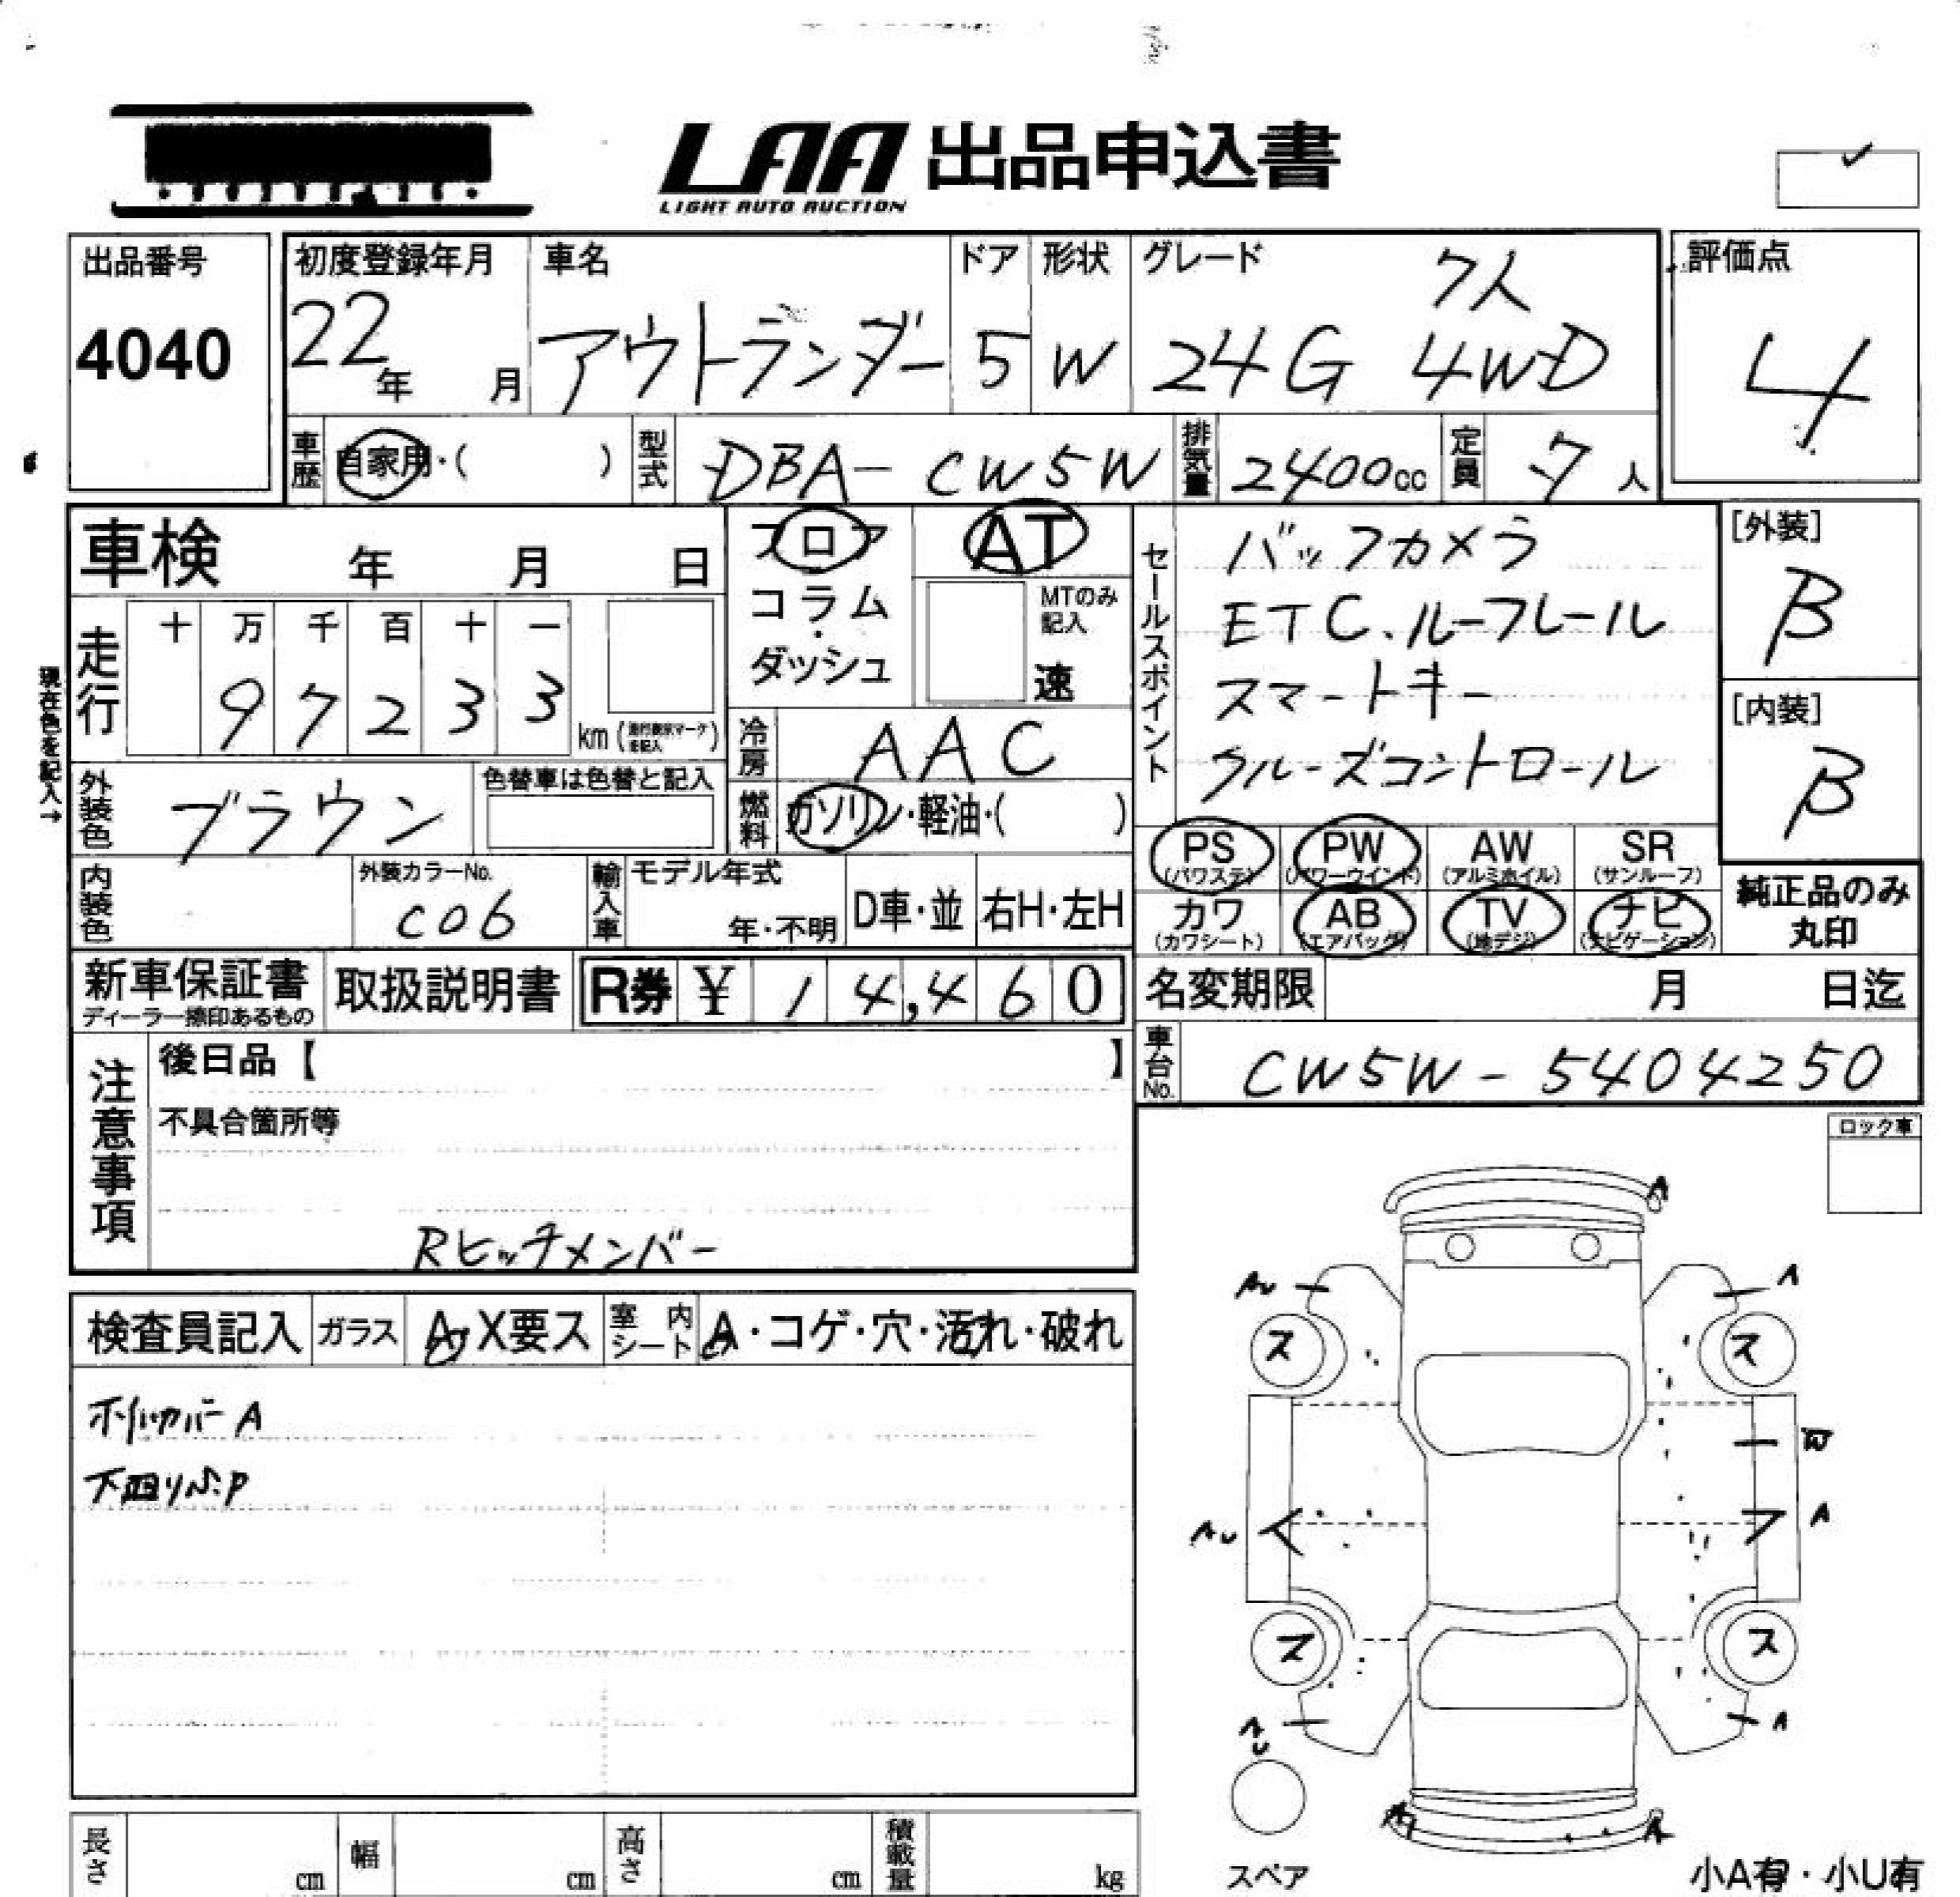 LAA 出品申込書
LIGHT AUTO AUCTION
出品番号
4040
初度登録年月
22年 月
車名
アウトランダー
ドア
5
形状
W
グレード
7人
24G 4WD
評価点
4
車歴 自家用・( )
型式 DBA-CW5W
排気量 2400cc
定員 7人
車検 年 月 日
フロア
コラム
・
ダッシュ
AT
MTのみ
記入
速
セールスポイント
バックカメラ
ETC.ルーフレール
スマートキー
クルーズコントロール
[外装]
B
[内装]
B
現在色を記入→
走行
十 万 千 百 十 一
9 7 2 3 3
km
冷房 AAC
外装色 ブラウン
色替車は色替と記入
燃料 ガソリン・軽油・( )
PS PW AW SR
(パワステ) (パワーウインド) (アルミホイル) (サンルーフ)
カワ AB TV ナビ
(カワシート) (エアバック) (地デジ) (ナビゲーション)
純正品のみ
丸印
内装色
外装カラーNo.
C06
輸入車
モデル年式
年・不明
D車・並
右H・左H
新車保証書
ディーラー捺印あるもの
取扱説明書
R券 ¥ 14,460
名変期限 月 日迄
車台No. CW5W-5404250
注意事項
後日品【 】
不具合箇所等
Rヒッチメンバー
ロック車
検査員記入
ガラス
A・X要ス
室内
シート
A・コゲ・穴・汚れ・破れ
ホイルカバーA
下回りS.P
A
AU
A
ス
ス
W
AU
A
ス
ス
AU
A
A
スペア
小A有・小U有
長さ cm
幅 cm
高さ cm
積載量 kg